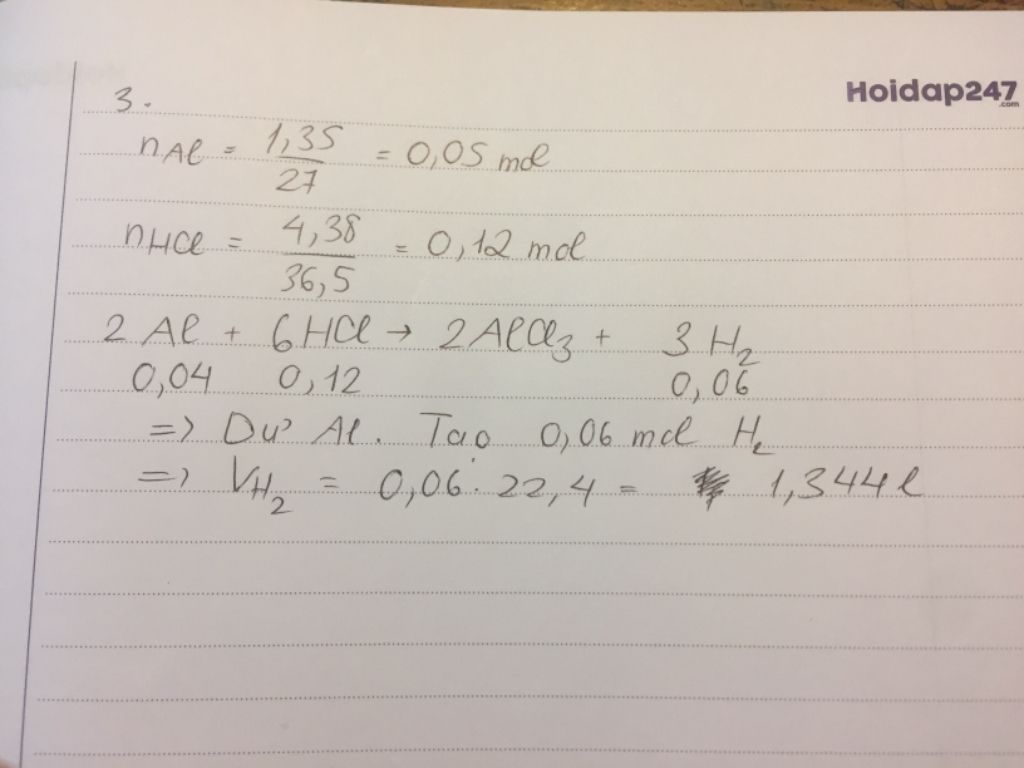 Hoidap247
.com
3.
nAl = 1,35/27 = 0,05 mol
nHCl = 4,38/36,5 = 0,12 mol
2 Al + 6 HCl → 2 AlCl₃ + 3 H₂
0,04 0,12 0,06
=> Dư Al. Tạo 0,06 mol H₂
=> VH₂ = 0,06 . 22,4 = 1,344 l